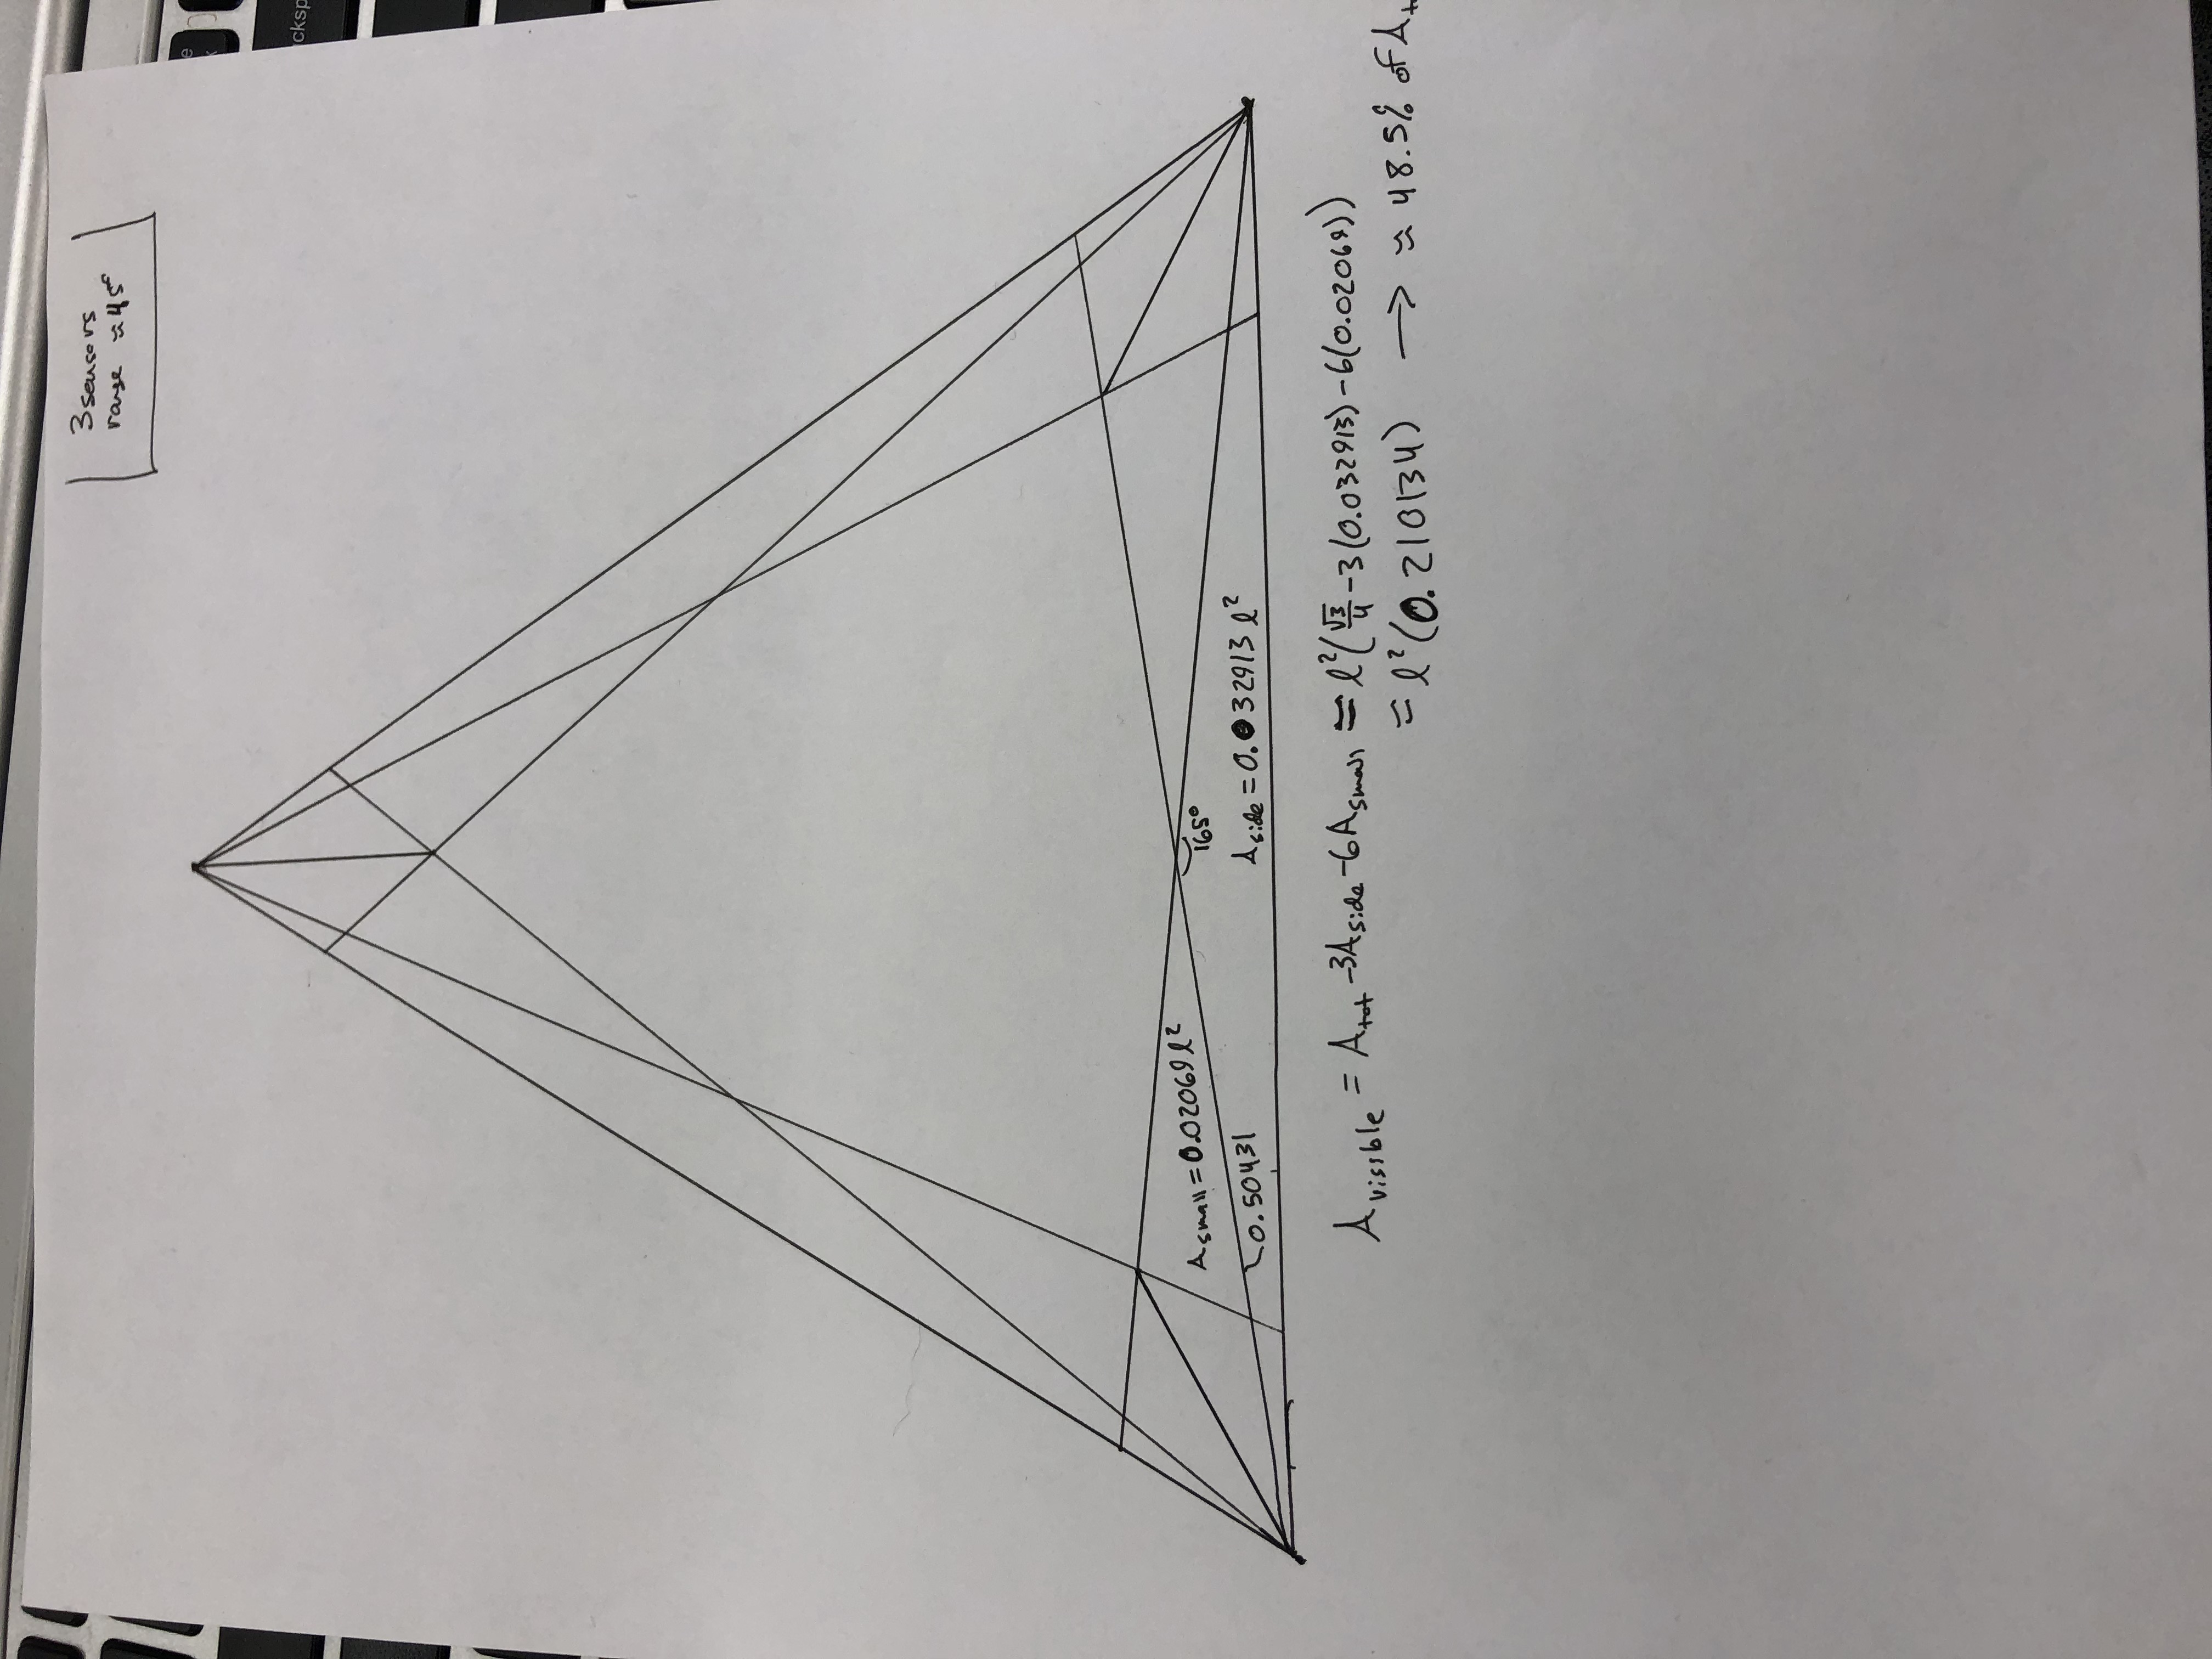 3 sensors
range ≈ 45°
A small = 0.02069 l²
165°
0.50431
A side = 0.032913 l²
A vissble = A tot - 3A side - 6A small = l²(√3/4 - 3(0.032913) - 6(0.02069))
= l²(0.210134) → ≈ 48.5% of A
e
k
cksp